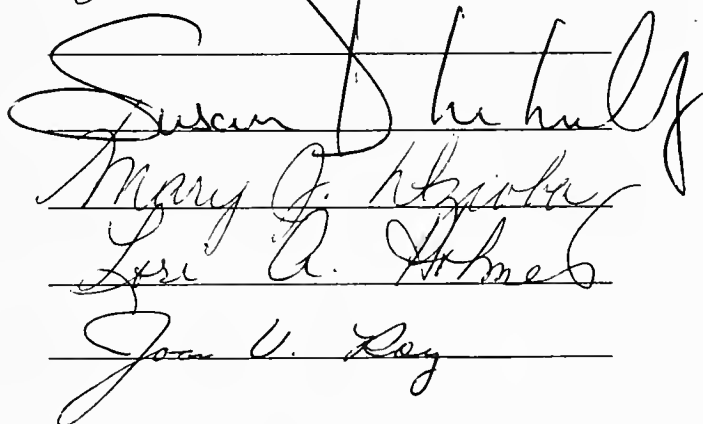 Susan D
Mary J.
Lori A. Holmes
Joan V. Roy